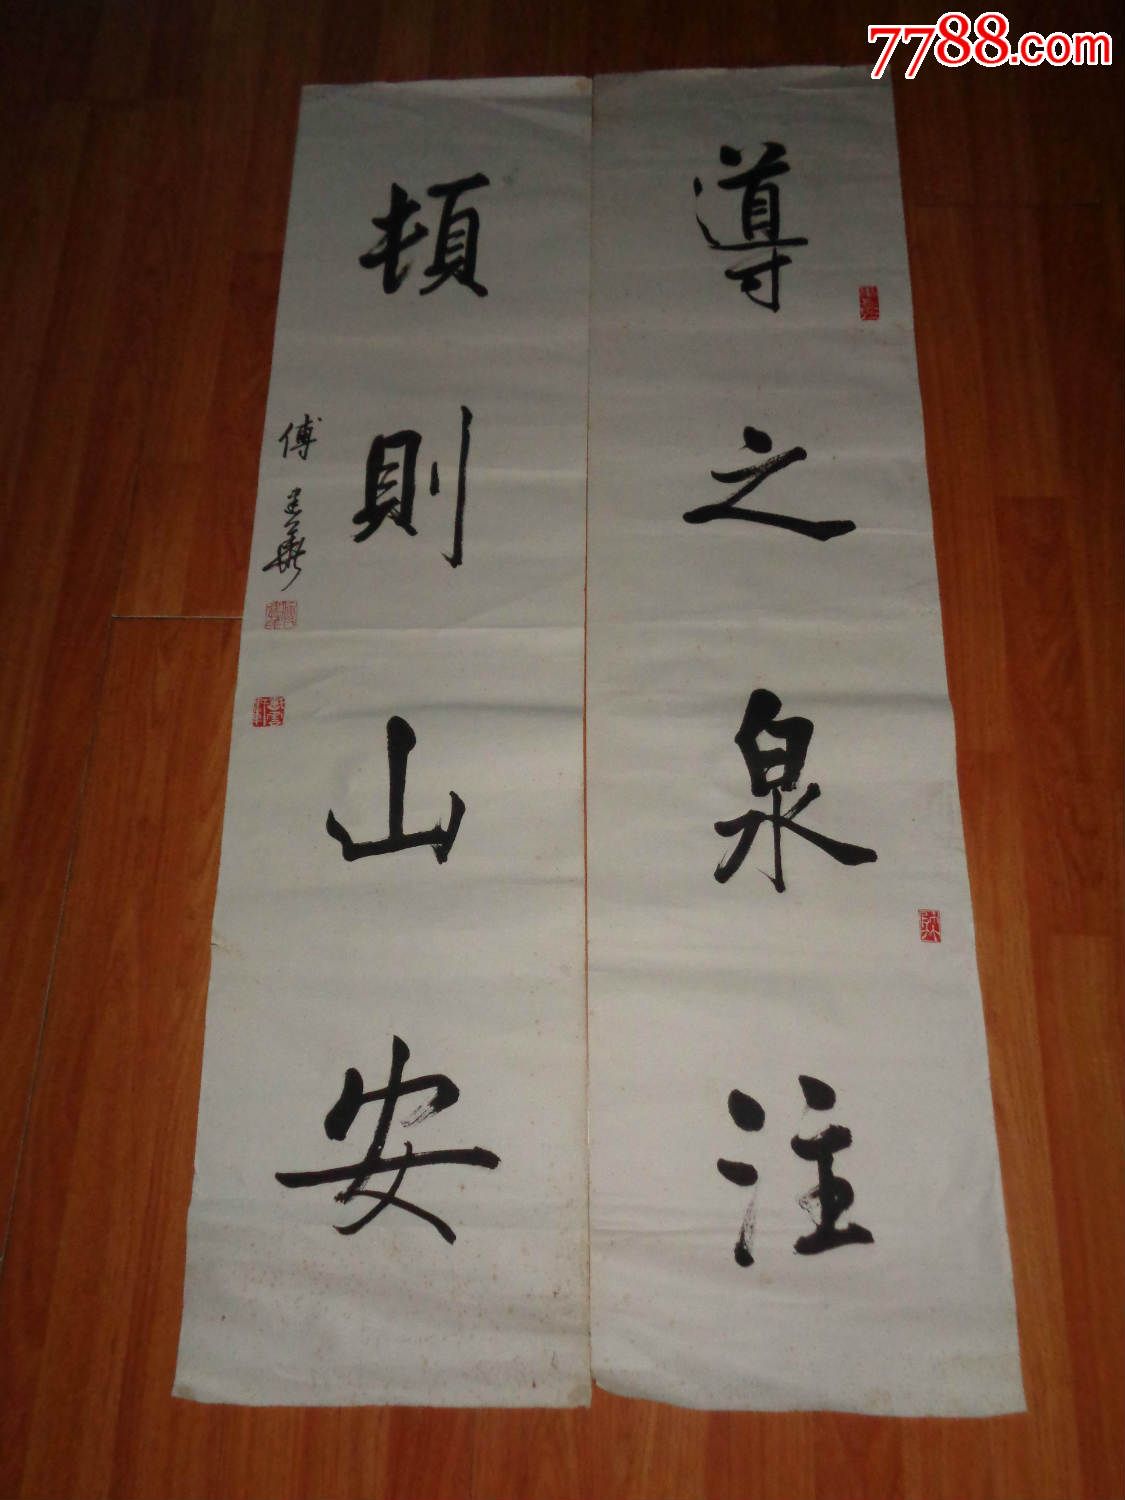 7788.com
導之泉注
頓則山安
傅建華